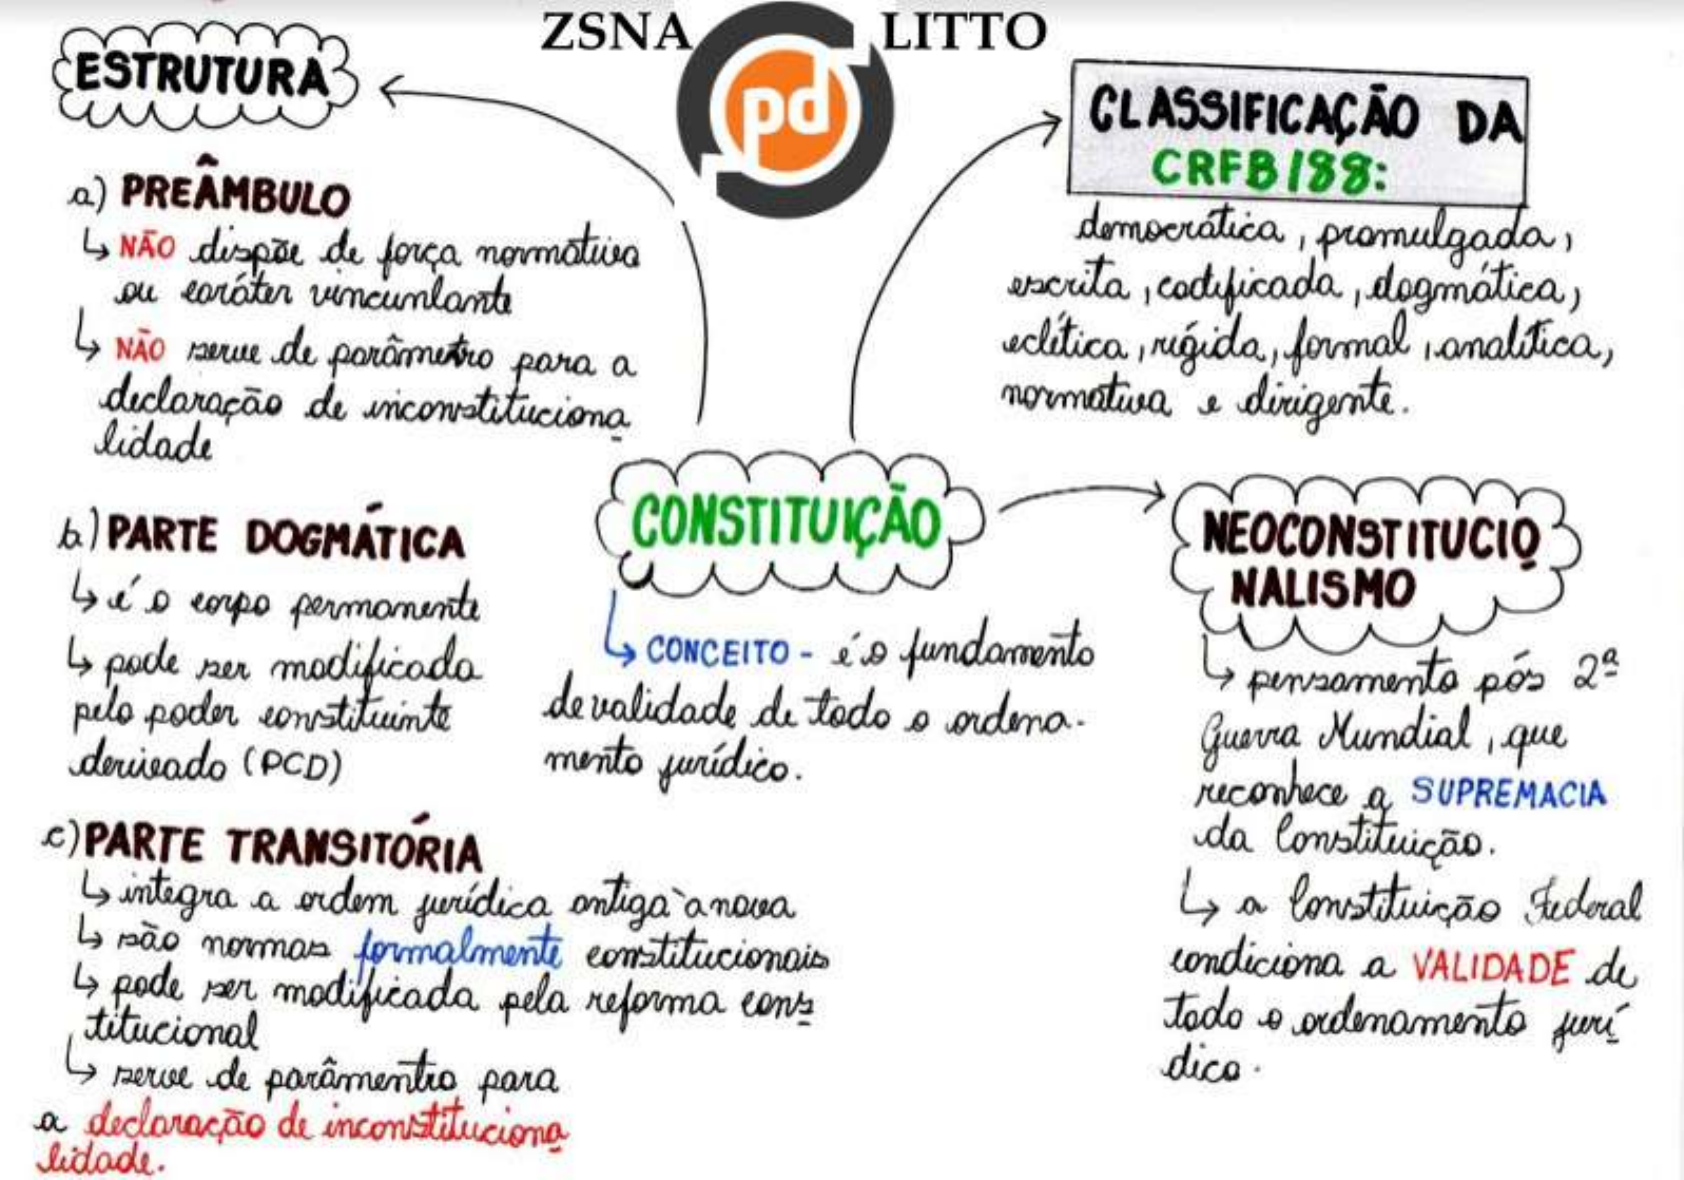 ZSNA
pd
LITTO
ESTRUTURA
a) PREÂMBULO
↳ NÃO dispõe de força normativa
ou caráter vincunlante
↳ NÃO serve de parâmetro para a
declaração de inconstituciona
lidade
b) PARTE DOGMÁTICA
↳ é o corpo permanente
↳ pode ser modificada
pelo poder constituinte
derivado (PCD)
c) PARTE TRANSITÓRIA
↳ integra a ordem jurídica antiga à nova
↳ são normas formalmente constitucionais
↳ pode ser modificada pela reforma cons
titucional
↳ serve de parâmentro para
a declaração de inconstituciona
lidade.
CONSTITUIÇÃO
↳ CONCEITO - é o fundamento
de validade de todo o ordena-
mento jurídico.
CLASSIFICAÇÃO DA
CRFB/88:
democrática, promulgada,
escrita, codificada, dogmática,
eclética, rígida, formal, analítica,
normativa e dirigente.
NEOCONSTITUCIO
NALISMO
↳ pensamento pós 2ª
Guerra Mundial, que
reconhece a SUPREMACIA
da Constituição.
↳ a Constituição Federal
condiciona a VALIDADE de
todo o ordenamento jurí
dico.